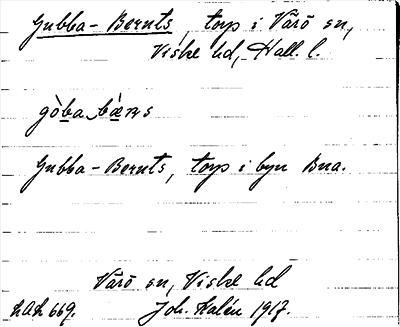 Gubba-Bernts, torp i Värö sn,
Viske hd, Hall. l.
gòba bæ̀ns
Gubba-Bernts, torp i byn Bua.
Värö sn, Viske hd
LAL 669. Joh. Kalén 1917.